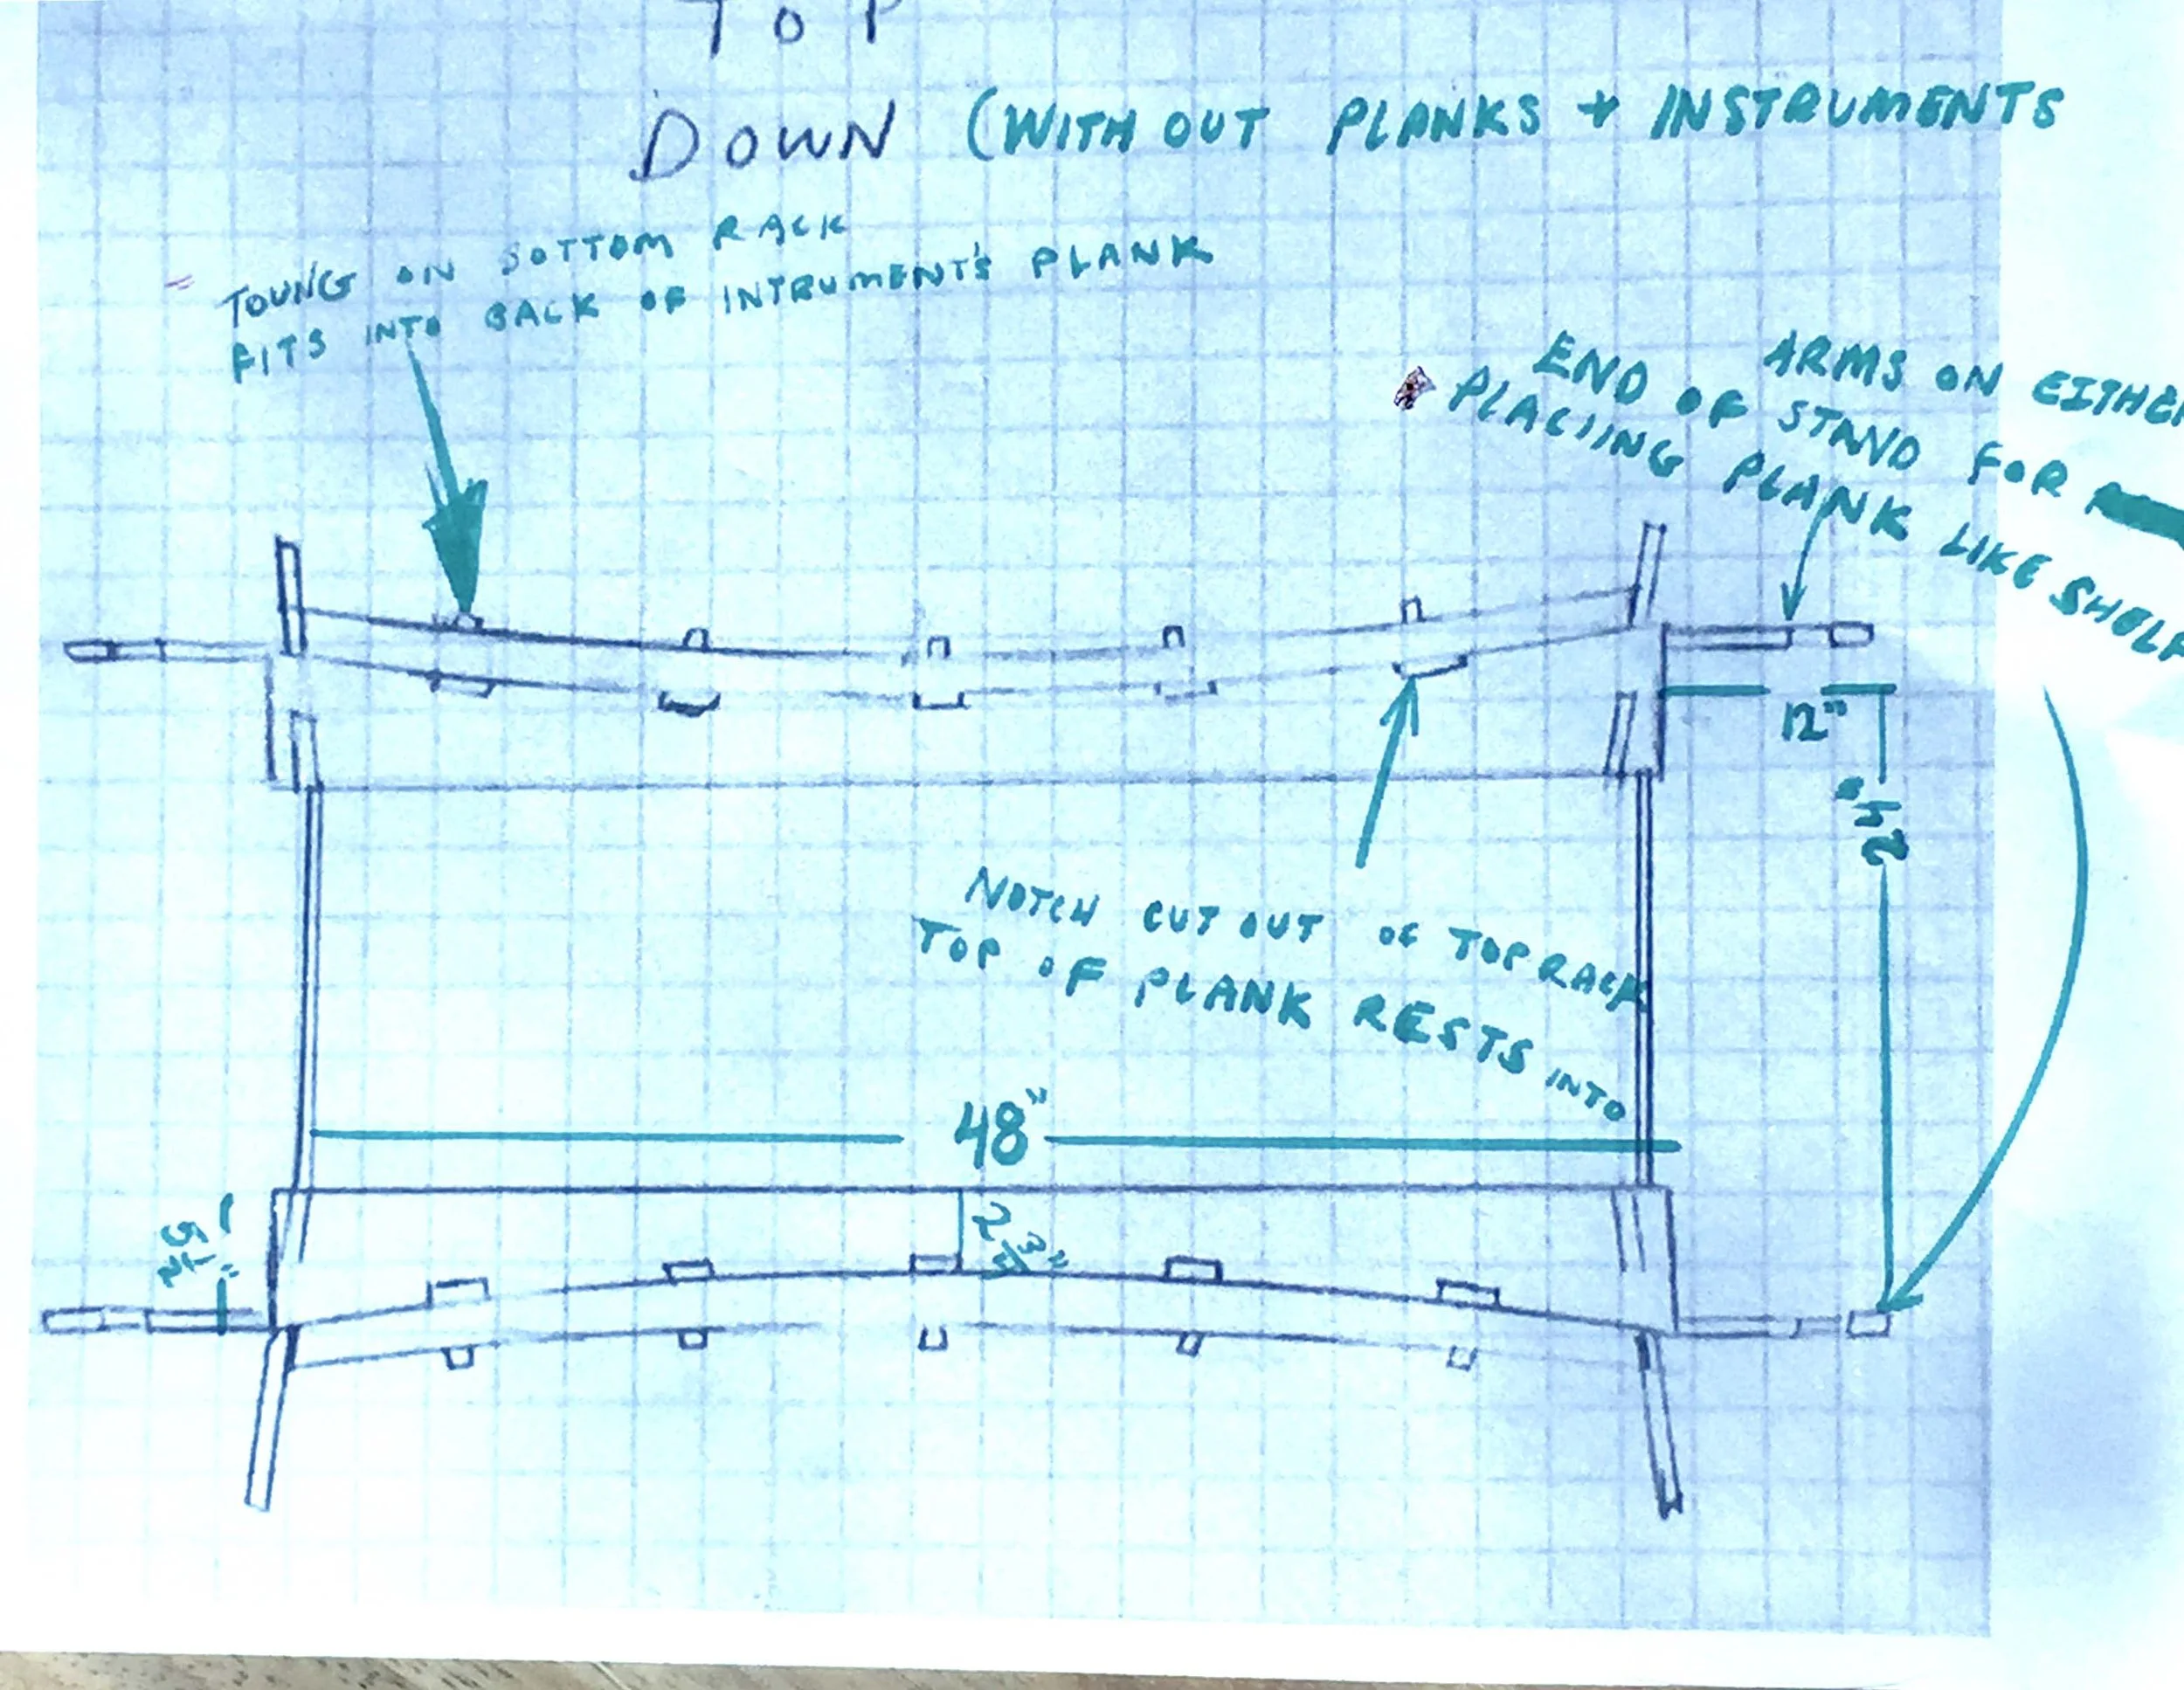 TOP
DOWN (WITH OUT PLANKS + INSTRUMENTS
TOUNG ON BOTTOM RACK
FITS INTO BACK OF INTRUMENT'S PLANK
ARMS ON EITHER
END OF STAND FOR
PLACIING PLANK LIKE SHELF
12"
NOTCH CUT OUT OF TOP RACK
TOP OF PLANK RESTS INTO
48"